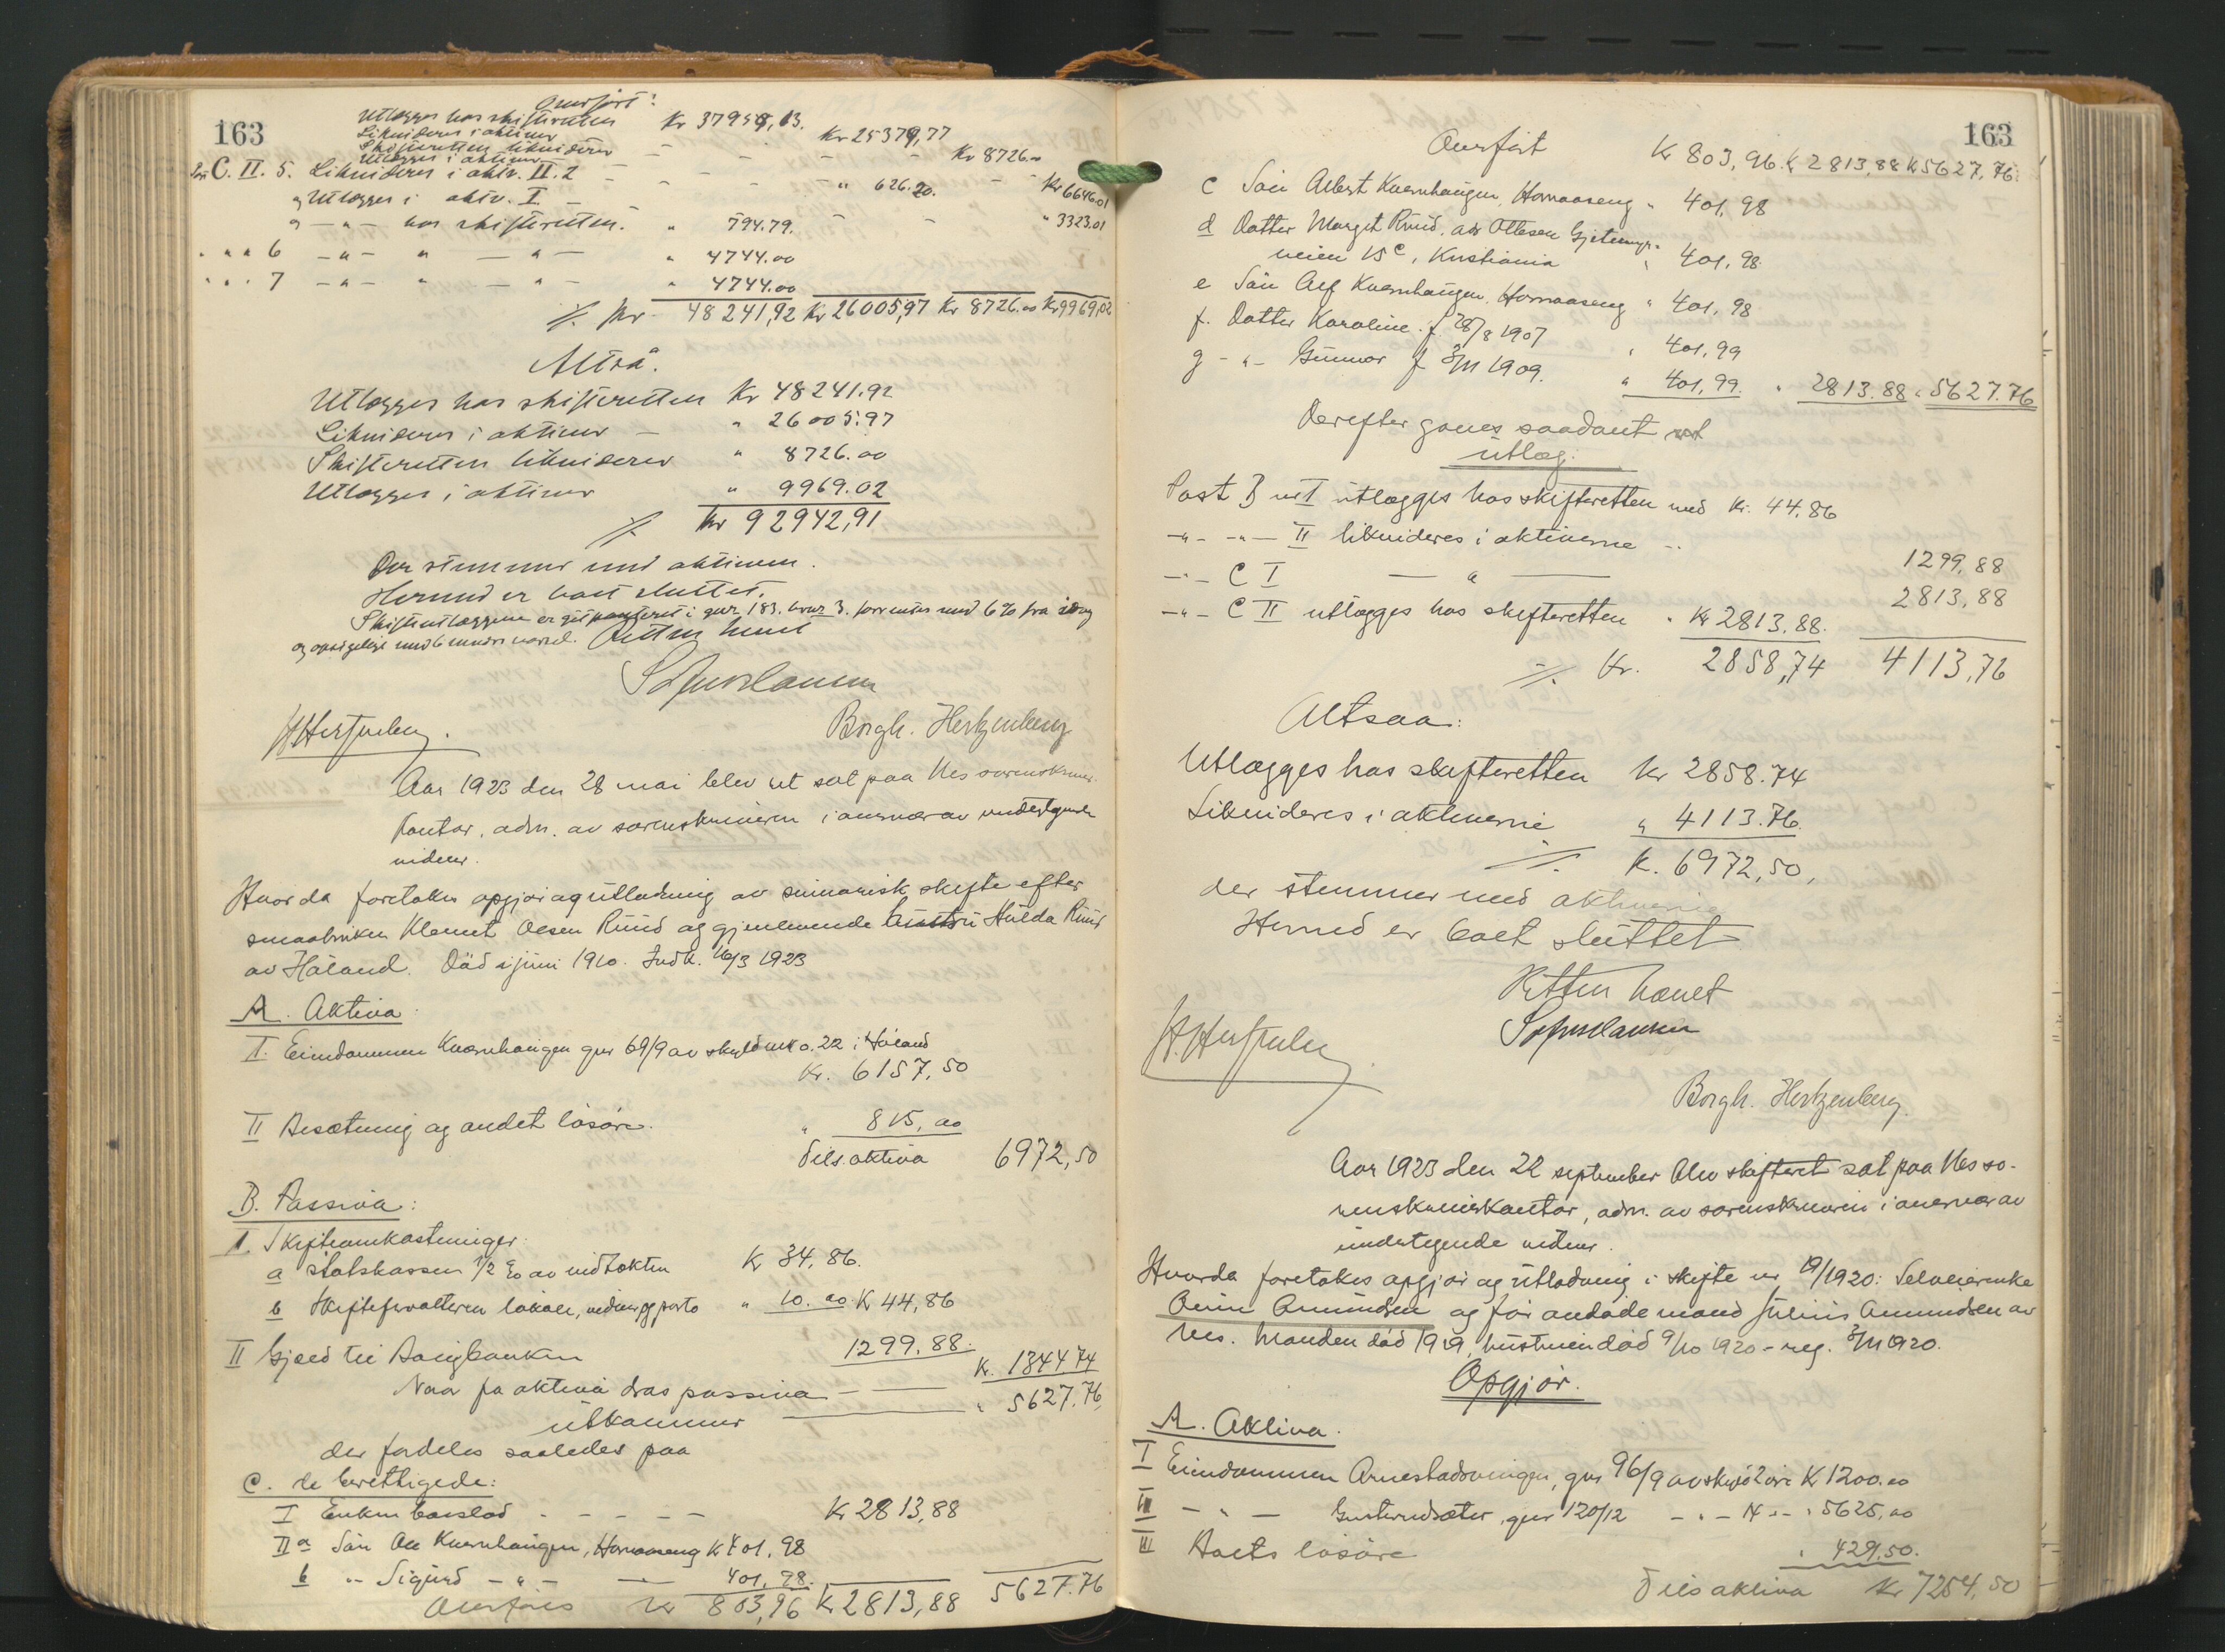 163
Overført:
Utlægges hos skifteretten Kr 37959,13.
Likvideres i aktiver Kr 25379,77
Skifteretten likviderer Kr 8726.00
Utlægges i aktiver Kr 6646.01
C. II. 5. Likvideres i aktv. II.2 " 626.20.
og Utlægges i aktv. I " 3323.01
" - " - hos skifteretten. " 794.79.
" " " 6 - " - " - " - " 4744.00
" " " 7 - " - " - " - " 4744.00
Kr 48241,92 Kr 26005,97 Kr 8726.00 Kr 9969,02
Altså.
Utlægges hos skifteretten Kr 48241.92
Likvideres i aktiver " 26005.97
Skifteretten likviderer " 8726.00
Utlægges i aktiver " 9969.02
Kr 92942,91
Der stemmer med aktiven.
Hermed er boet sluttet.
Skifteutlæggene er gitt panteret i gnr 183. brnr 3. forrentes med 6% fra idag
og opsigelige med 6 mndrs varsel. Retten hævet
H. Hertzenberg.
Borgh. Hertzenberg
Aar 1923 den 28 mai blev ret sat paa Nes sorenskriver-
kontor, adm. av sorenskriveren i overvær av undertegnede
vidner.
Hvor da foretokes opgjør og utlodning av summarisk skifte efter
smaabruker Klemet Olsen Ruud og gjenlevende hustru Hulda Ruud
av Håland. Død i juni 1910. Indk. 16/3 1923
A. Aktiva.
I. Eiendommen Kværnhaugen gnr 69/9 av skyld mk 0.22 i Håland
Kr. 6157,50
II Besætning og andet løsøre. " 815,00
Tils. aktiva 6972,50
B. Passiva:
I. Skifteomkostninger:
a Statskassen 1/2 % av indtækten K 34,86.
b Skifteforvalteren lokale, vidner og porto " 10.00 K 44,86
II Gjæld til Bøigbanken 1299.88. K. 1344 74
Naar fra aktiva dras passiva " 5627.76
utkommer
der fordeles saaledes paa
C. de berettigede:
I Enken boeslod - - - - - Kr 2813,88
II a Søn Ole Kværnhaugen, Hornaaseng K 401,98
b " Sigurd - " - 401,98.
Overføres Kr 803,96 K 2813,88 5627.76
163
Overført Kr 803,96. K 2813,88 K 5627,76.
c Søn Albert Kværnhaugen, Hornaaseng " 401,98
d Datter Margit Ruud, adr Ottesen Gjetemyrs-
veien 15c, Kristiania " 401,98
e Søn Alf Kværnhaugen, Hornaaseng " 401,98
f. Datter Karoline f 28/8 1907 " 401,99
g - " - Gunnar f 3/11 1909. " 401,99. " 2813.88 " 5627.76
Derefter gjøres saadant
utlæg.
Post B nr I utlægges hos skifteretten med Kr. 44,86
- " - - " - II likvideres i aktiverne - 1299,88
- " - C I - " - 2813,88
- " - C II utlægges hos skifteretten " Kr 2813,88.
Kr. 2858,74 4113,76
Altsaa:
Utlægges hos skifteretten Kr 2858.74
Likvideres i aktiverne " 4113.76.
K. 6972,50,
der stemmer med aktiverne
Hermed er boet sluttet
Retten hævet
H. Hertzenberg.
Borgh. Hertzenberg.
Aar 1923 den 22 september blev skifteret sat paa Nes so-
renskriverkontor, adm. av sorenskriveren i overvær av
undertegnede vidner.
Hvorda foretokes opgjør og utlodning i skifte nr 19/1920: Selveierenke
Oline Amundsen og før avdøde mand Julius Amundsen av
Nes. Manden død 1919, hustruen død 9/10 1920 - reg. 3/11 1920.
Opgjør.
A. Aktiva.
I Eiendommen Arnestadsvingen, gnr 96/9 av skyld 2 øre K 1200.00
II - " - Gusterudsæter, gnr 120/12 - " - 14 - " - " 5625,00
III Boets løsøre " 429,50.
Tils aktiva Kr 7254,50